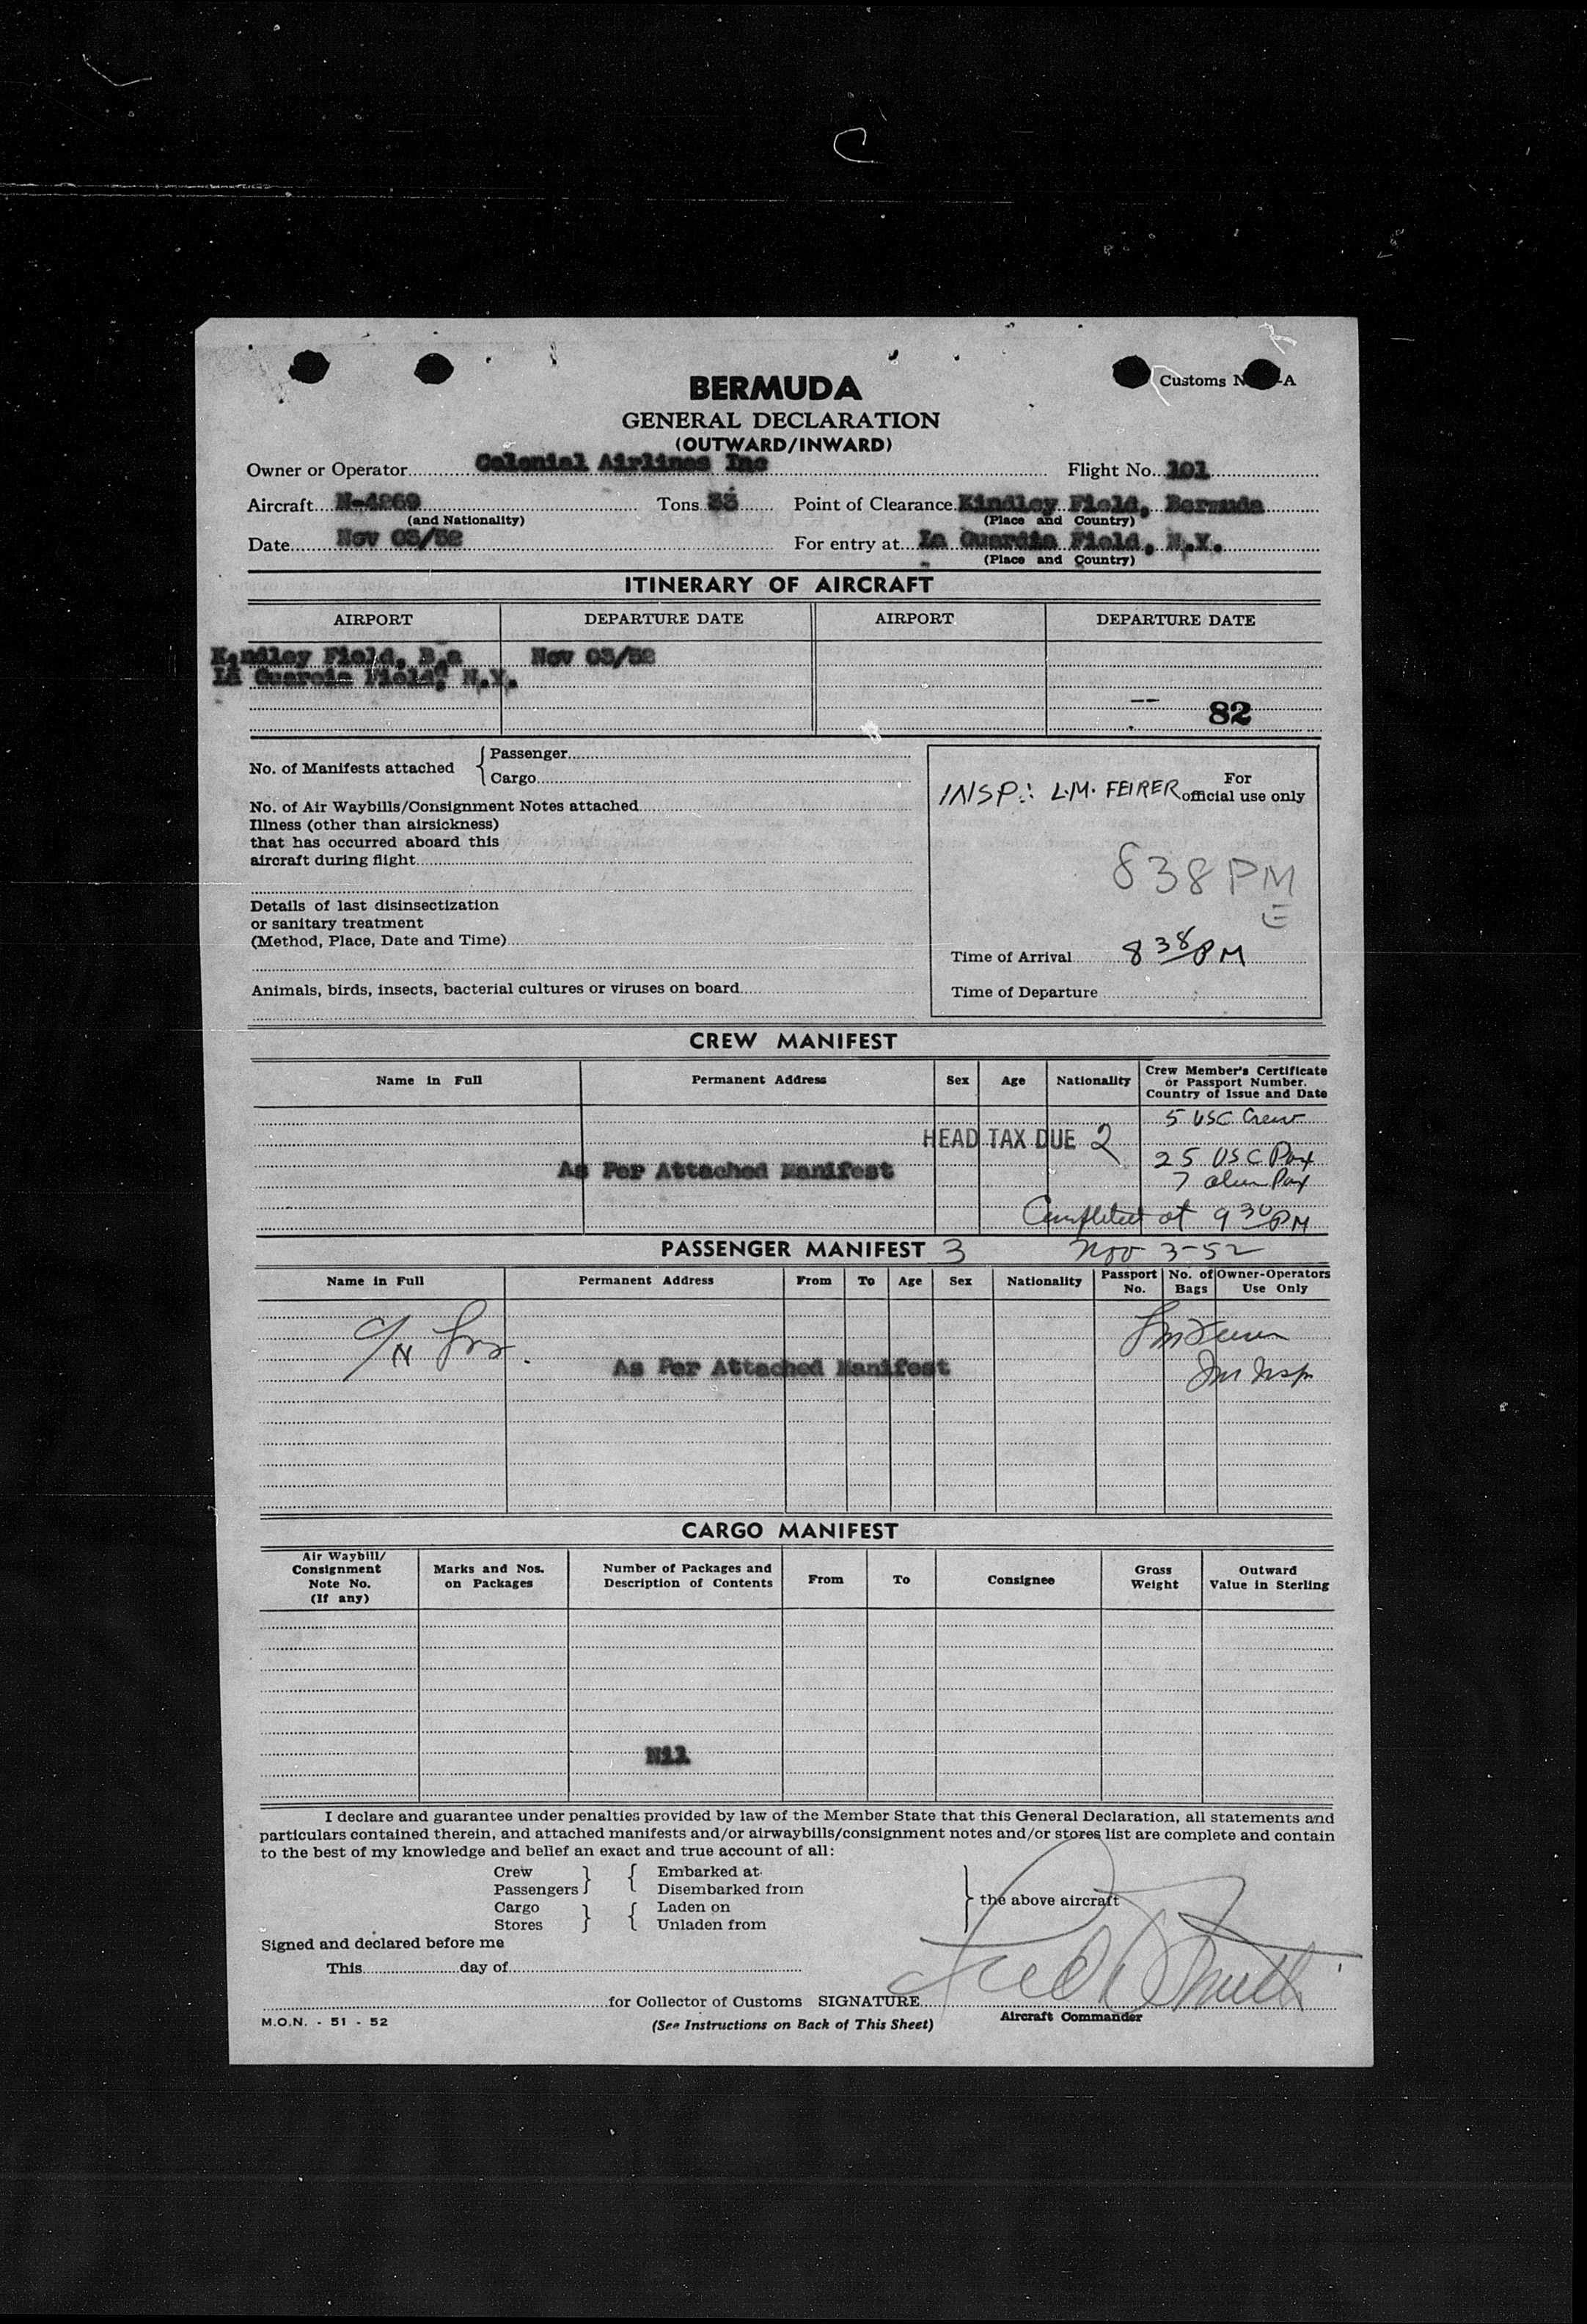 Customs N -A
BERMUDA
GENERAL DECLARATION
(OUTWARD/INWARD)
Owner or Operator Colonial Airlines Inc Flight No. 101
Aircraft N-4269 Tons 33 Point of Clearance Kindley Field, Bermuda
(and Nationality) (Place and Country)
Date Nov 03/52 For entry at La Guardia Field, N.Y.
(Place and Country)
ITINERARY OF AIRCRAFT
AIRPORT DEPARTURE DATE AIRPORT DEPARTURE DATE
Kindley Field, B,a Nov 03/52
La Guardia Field, N.Y.
82
No. of Manifests attached { Passenger
Cargo
INSP.: L.M. FEIRER For official use only
No. of Air Waybills/Consignment Notes attached
Illness (other than airsickness)
that has occurred aboard this
aircraft during flight
838 PM
E
Details of last disinsectization
or sanitary treatment
(Method, Place, Date and Time)
Time of Arrival 8 38 PM
Animals, birds, insects, bacterial cultures or viruses on board
Time of Departure
CREW MANIFEST
Name in Full Permanent Address Sex Age Nationality Crew Member's Certificate or Passport Number. Country of Issue and Date
5 USC Crew
HEAD TAX DUE 2
25 USC Pax
As Per Attached Manifest
7 alien Pax
Completed at 9 30 PM
PASSENGER MANIFEST 3 Nov 3-52
Name in Full Permanent Address From To Age Sex Nationality Passport No. No. of Bags Owner-Operators Use Only
As Per Attached Manifest
Im Insp
CARGO MANIFEST
Air Waybill/ Consignment Note No. (If any) Marks and Nos. on Packages Number of Packages and Description of Contents From To Consignee Gross Weight Outward Value in Sterling
Nil
I declare and guarantee under penalties provided by law of the Member State that this General Declaration, all statements and
particulars contained therein, and attached manifests and/or airwaybills/consignment notes and/or stores list are complete and contain
to the best of my knowledge and belief an exact and true account of all:
Crew } { Embarked at
Passengers } { Disembarked from
} the above aircraft
Cargo } { Laden on
Stores } { Unladen from
Signed and declared before me
This day of
for Collector of Customs SIGNATURE
Aircraft Commander
M.O.N. - 51 - 52 (See Instructions on Back of This Sheet)